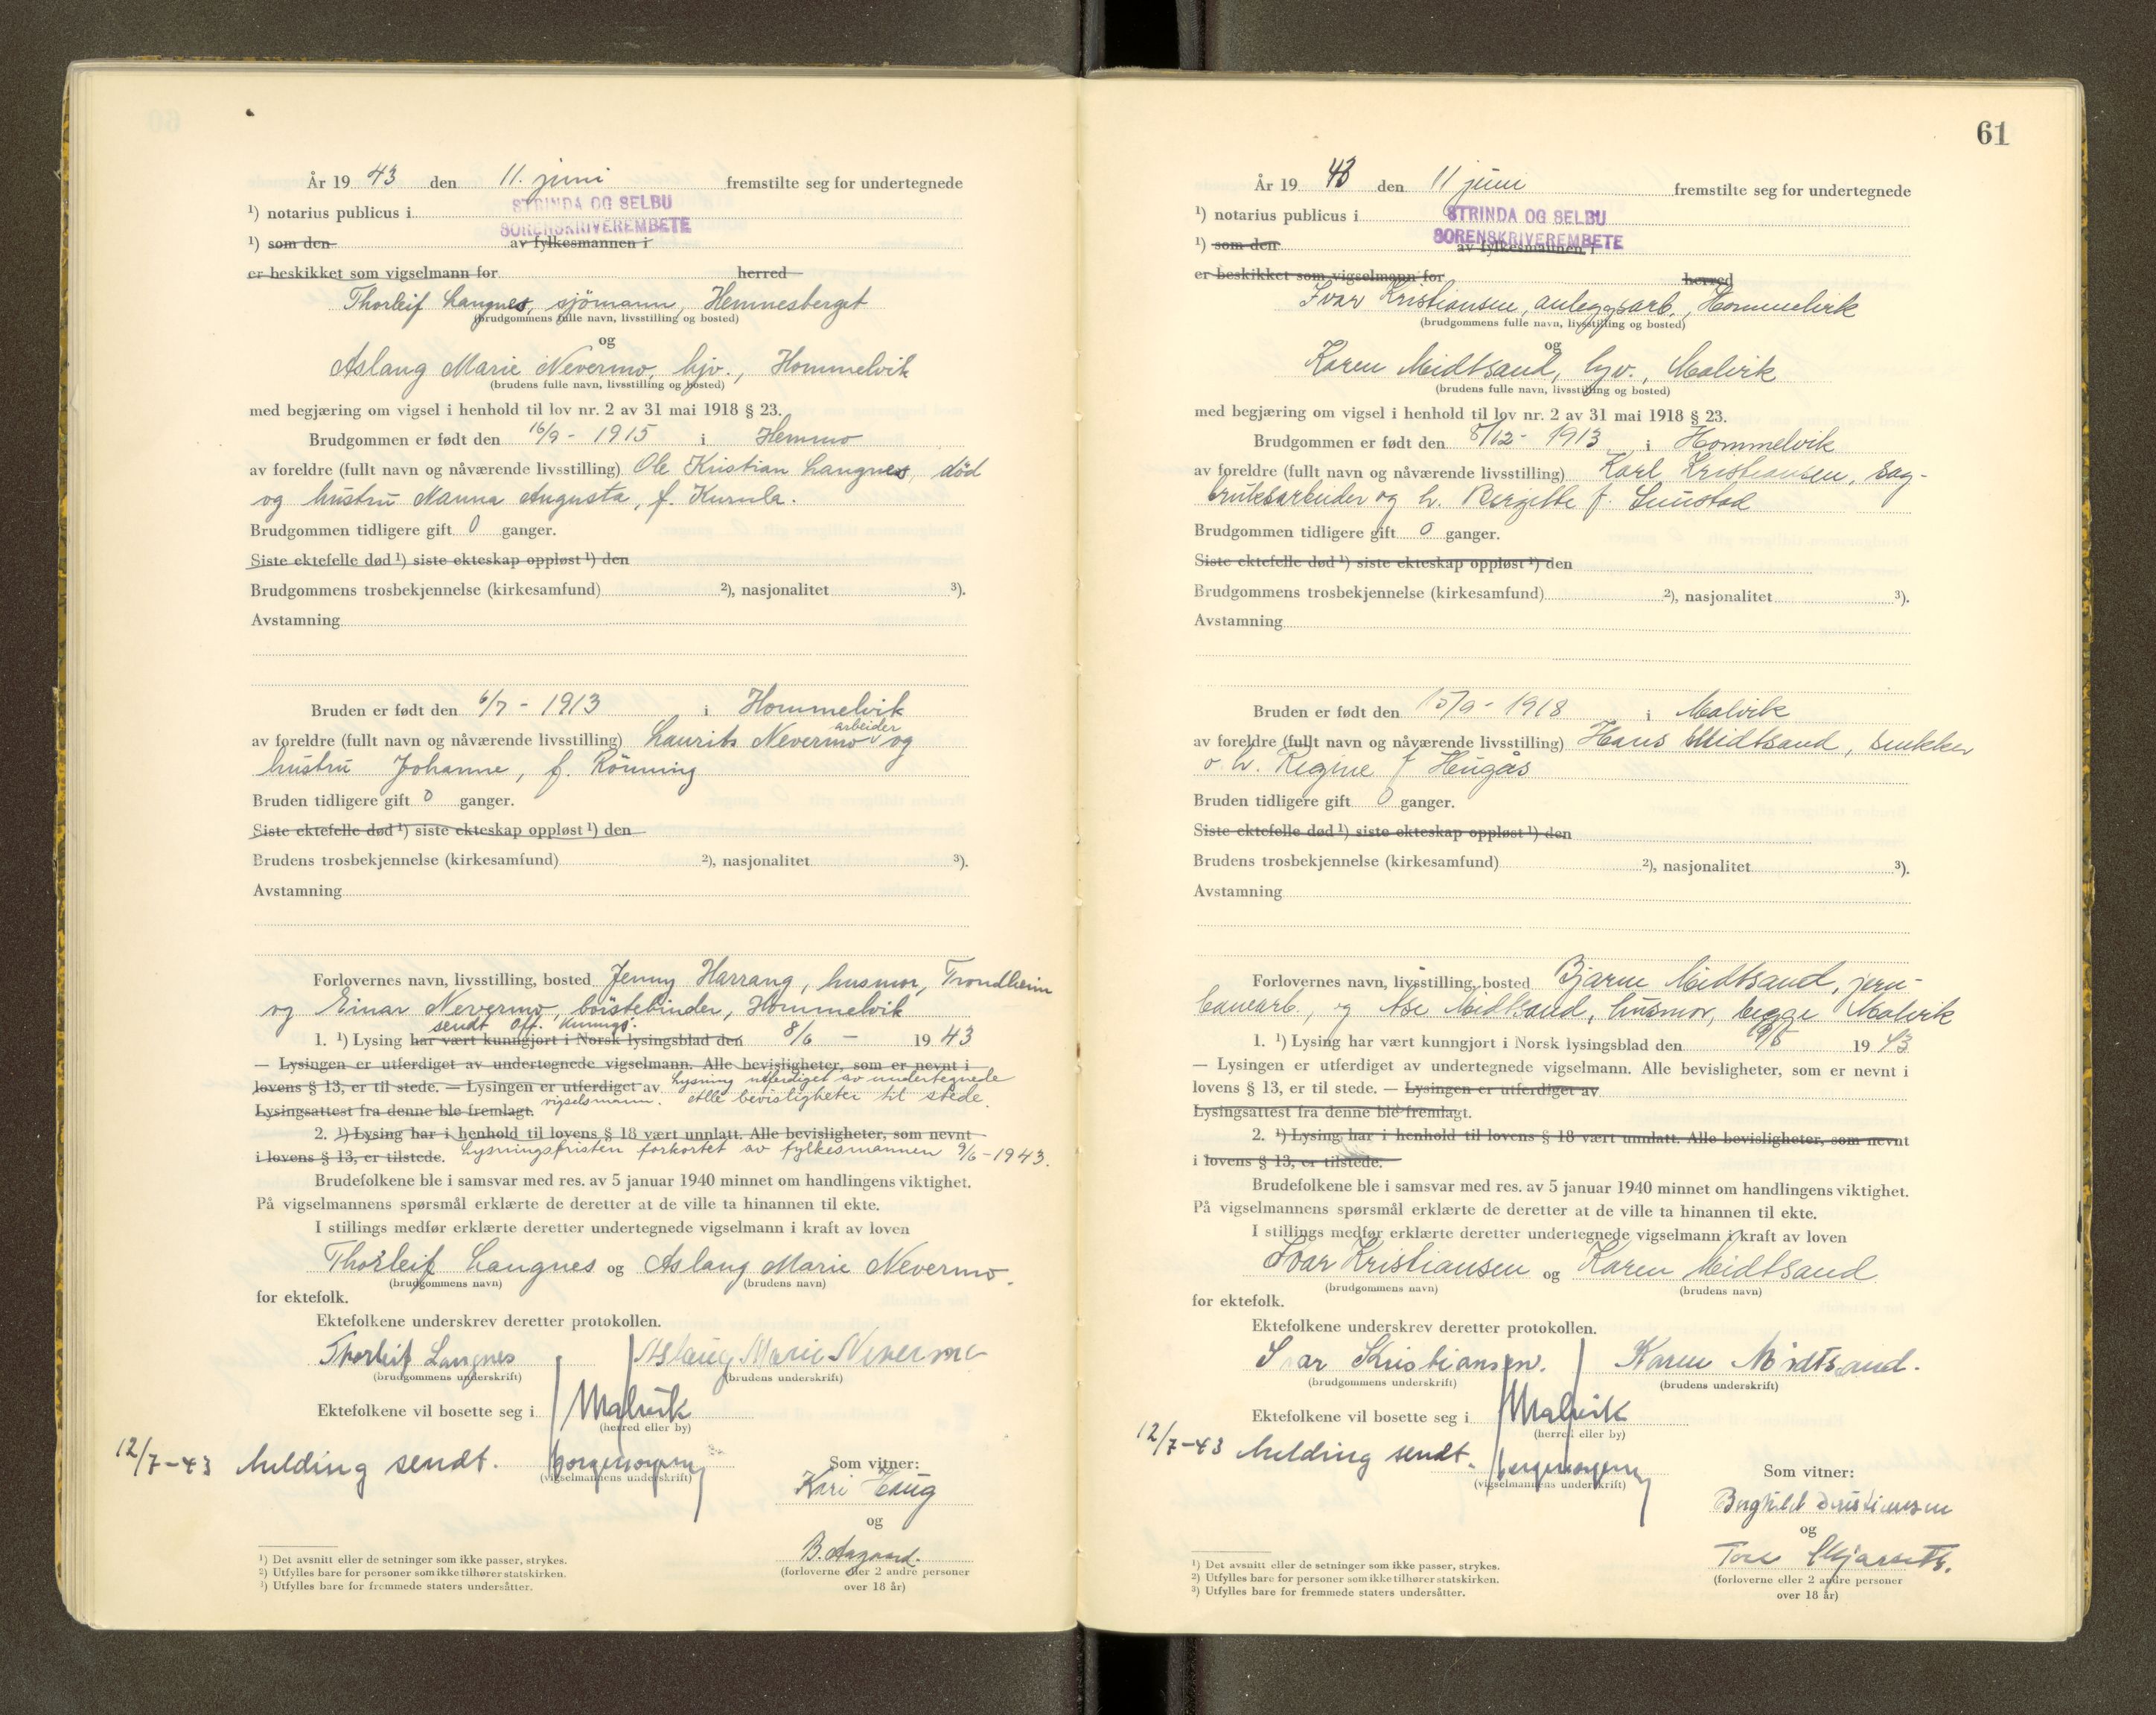 År 19 43 den 11. juni fremstilte seg for undertegnede
¹) notarius publicus i STRINDA OG SELBU
SORENSKRIVEREMBETE
¹) som den av fylkesmannen i
er beskikket som vigselmann for herred
Thorleif Langnes, sjömann, Hemnesberget
(brudgommens fulle navn, livsstilling og bosted)
og
Aslaug Marie Nevermo, hjv., Hommelvik
(brudens fulle navn, livsstilling og bosted)
med begjæring om vigsel i henhold til lov nr. 2 av 31 mai 1918 § 23.
Brudgommen er født den 16/9 - 1915 i Hemmo
av foreldre (fullt navn og nåværende livsstilling) Ole Kristian Langnes, död
og hustru Nanna Augusta, f.
Brudgommen tidligere gift 0 ganger.
Siste ektefelle død ¹) siste ekteskap oppløst ¹) den
Brudgommens trosbekjennelse (kirkesamfund) ²), nasjonalitet ³).
Avstamning
Bruden er født den 6/7 - 1913 i Hommelvik
arbeider
av foreldre (fullt navn og nåværende livsstilling) Laurits Nevermo og
hustru Johanne, f. Rönning
Bruden tidligere gift 0 ganger.
Siste ektefelle død ¹) siste ekteskap oppløst ¹) den
Brudens trosbekjennelse (kirkesamfund) ²), nasjonalitet ³).
Avstamning
Forlovernes navn, livsstilling, bosted Jenny Harrang, husmor, Trondheim
og Einar Nevermo, börstebinder, Hommelvik
sendt Off. Kunngj.
1. ¹) Lysing har vært kunngjort i Norsk lysingsblad den 8/6 - 19 43
— Lysingen er utferdiget av undertegnede vigselmann. Alle bevisligheter, som er nevnt i
lovens § 13, er til stede. — Lysingen er utferdiget av Lysning utferdiget av undertegnede
Lysingsattest fra denne ble fremlagt. vigselsmann. Alle bevisligheter til stede.
2. ¹) Lysing har i henhold til lovens § 18 vært unnlatt. Alle bevisligheter, som nevnt
i lovens § 13, er tilstede. Lysningsfristen forkortet av fylkesmannen 9/6 - 1943.
Brudefolkene ble i samsvar med res. av 5 januar 1940 minnet om handlingens viktighet.
På vigselmannens spørsmål erklærte de deretter at de ville ta hinannen til ekte.
I stillings medfør erklærte deretter undertegnede vigselmann i kraft av loven
Thorleif Langnes og Aslaug Marie Nevermo.
(brudgommens navn) (brudens navn)
for ektefolk.
Ektefolkene underskrev deretter protokollen.
Thorleif Langnes Aslaug Marie Nevermo
(brudgommens underskrift) (brudens underskrift)
Ektefolkene vil bosette seg i Malvik
(herred eller by)
12/7-43 Melding sendt.
(vigselmannens underskrift)
Som vitner:
Kari Haug
og
B. Aagaard.
(forloverne eller 2 andre personer
over 18 år)
¹) Det avsnitt eller de setninger som ikke passer, strykes.
²) Utfylles bare for personer som ikke tilhører statskirken.
³) Utfylles bare for fremmede staters undersåtter.
61
År 19 43 den 11 juni fremstilte seg for undertegnede
¹) notarius publicus i STRINDA OG SELBU
SORENSKRIVEREMBETE
¹) som den av fylkesmannen i
er beskikket som vigselmann for herred
Ivar Kristiansen, anleggsarb., Hommelvik
(brudgommens fulle navn, livsstilling og bosted)
og
Karen Midtsand, hjv., Malvik
(brudens fulle navn, livsstilling og bosted)
med begjæring om vigsel i henhold til lov nr. 2 av 31 mai 1918 § 23.
Brudgommen er født den 8/12 - 1913 i Hommelvik
av foreldre (fullt navn og nåværende livsstilling) Karl Kristiansen, sag-
bruksarbeider og h. Bergitte f.
Brudgommen tidligere gift 0 ganger.
Siste ektefelle død ¹) siste ekteskap oppløst ¹) den
Brudgommens trosbekjennelse (kirkesamfund) ²), nasjonalitet ³).
Avstamning
Bruden er født den 15/9 - 1918 i Malvik
av foreldre (fullt navn og nåværende livsstilling) Hans Midtsand, snekker
o h. Regine f Haugås
Bruden tidligere gift 0 ganger.
Siste ektefelle død ¹) siste ekteskap oppløst ¹) den
Brudens trosbekjennelse (kirkesamfund) ²), nasjonalitet ³).
Avstamning
Forlovernes navn, livsstilling, bosted Bjarne Midtsand, jern-
banearb., og Åse Midtsand, husmor, begge Malvik
1. ¹) Lysing har vært kunngjort i Norsk lysingsblad den 19 43
— Lysingen er utferdiget av undertegnede vigselmann. Alle bevisligheter, som er nevnt i
lovens § 13, er til stede. — Lysingen er utferdiget av
Lysingsattest fra denne ble fremlagt.
2. ¹) Lysing har i henhold til lovens § 18 vært unnlatt. Alle bevisligheter, som nevnt
i lovens § 13, er tilstede.
Brudefolkene ble i samsvar med res. av 5 januar 1940 minnet om handlingens viktighet.
På vigselmannens spørsmål erklærte de deretter at de ville ta hinannen til ekte.
I stillings medfør erklærte deretter undertegnede vigselmann i kraft av loven
Ivar Kristiansen og Karen Midtsand
(brudgommens navn) (brudens navn)
for ektefolk.
Ektefolkene underskrev deretter protokollen.
Ivar Kristiansen. Karen Midtsand.
(brudgommens underskrift) (brudens underskrift)
Ektefolkene vil bosette seg i Malvik
(herred eller by)
12/7-43 Melding sendt.
(vigselmannens underskrift)
Som vitner:
Borghild Kristiansen
og
Tore
(forloverne eller 2 andre personer
over 18 år)
¹) Det avsnitt eller de setninger som ikke passer, strykes.
²) Utfylles bare for personer som ikke tilhører statskirken.
³) Utfylles bare for fremmede staters undersåtter.